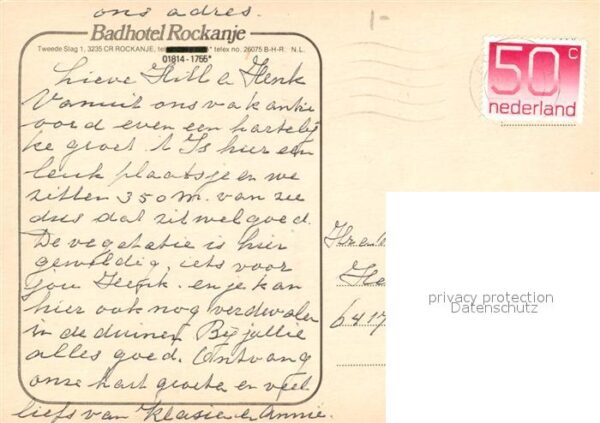 ons adres.
Badhotel Rockanje
Tweede Slag 1, 3235 CR ROCKANJE, telex no. 26075 B-H-R N.L.
01814-1755*
Lieve Hill e Henk
Vanuit ons vakantie
oord even een hartelij
ke groet. 't Is hier een
leuk plaatsje en we
zitten 350 m. van zee
dus dat zit wel goed.
De vegetatie is hier
geweldig, iets voor
jou Henk. en je kan
hier ook nog verdwalen
in de duinen. Bij jullie
alles goed. Ontvang
onze hart. groeten en veel
liefs van Klasien en Annie.
50 c
nederland
He
6417
privacy protection
Datenschutz